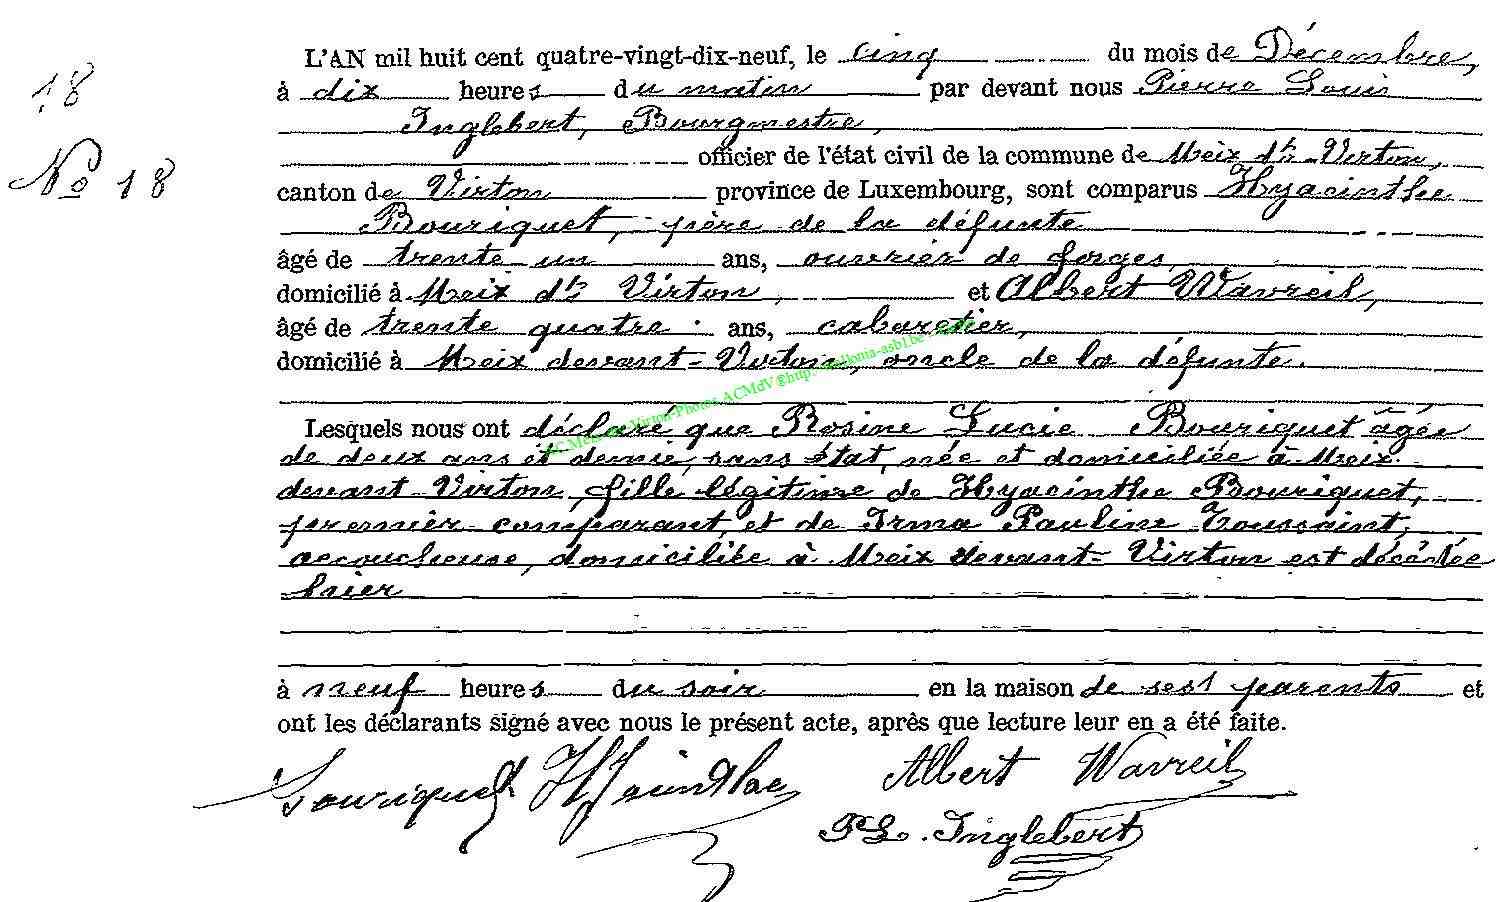 L'AN mil huit cent quatre-vingt-dix-neuf, le cinq du mois de Décembre,
18
à dix heures du matin par devant nous Pierre Louis
Inglebert, Bourgmestre,
officier de l'état civil de la commune de Meix dt Virton,
No 18
canton de Virton province de Luxembourg, sont comparus Hyacinthe
Bouriquet, père de la défunte
âgé de trente un ans, ouvrier de forges,
domicilié à Meix dt Virton, et Albert Wavreil,
âgé de trente quatre ans, cabaretier,
domicilié à Meix devant-Virton, oncle de la défunte.
Lesquels nous ont déclaré que Rosine Lucie Bouriquet âgée
de deux ans et demie, sans état, née et domiciliée à Meix
devant-Virton, fille légitime de Hyacinthe Bouriquet,
premier comparant, et de Irma Pauline Toussaint,
accoucheuse, domiciliée à Meix devant-Virton est décédée
hier
à neuf heures du soir en la maison de ses parents et
ont les déclarants signé avec nous le présent acte, après que lecture leur en a été faite.
Bouriquet Hyacinthe Albert Wavreil
PL. Inglebert